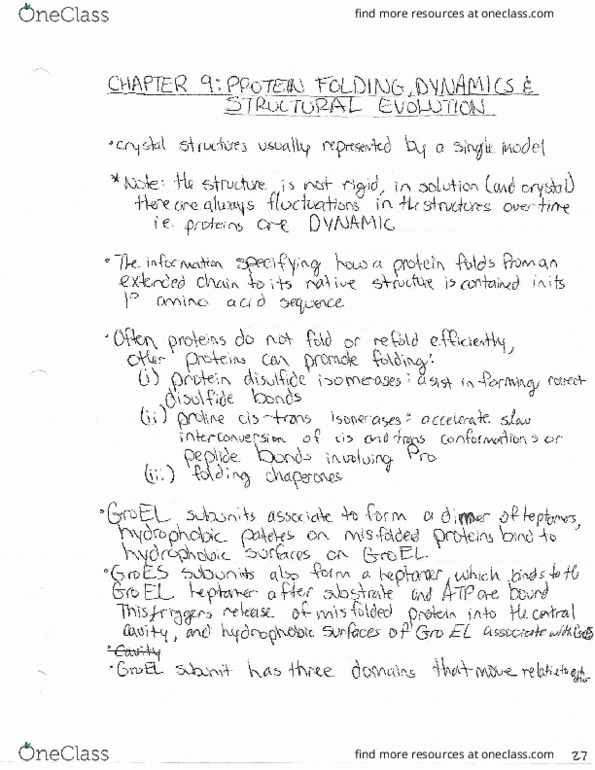 OneClass
find more resources at oneclass.com
CHAPTER 9: PROTEIN FOLDING, DYNAMICS &
STRUCTURAL EVOLUTION
• crystal structures usually represented by a single model
* Note: the structure is not rigid, in solution (and crystal)
there are always fluctuations in the structures over time
i.e. proteins are DYNAMIC
• The information specifying how a protein folds from an
extended chain to its native structure is contained in its
1° amino acid sequence
• Often proteins do not fold or refold efficiently,
other proteins can promote folding:
(i) protein disulfide isomerases: assist in forming correct
disulfide bonds
(ii) proline cis-trans isomerases: accelerate slow
interconversion of cis and trans conformations or
peptide bonds involving Pro
(iii) folding chaperones
• GroEL subunits associate to form a dimer of heptamers,
hydrophobic patches on misfolded proteins bind to
hydrophobic surfaces on GroEL
• GroES subunits also form a heptamer, which binds to the
GroEL heptamer after substrate and ATP are bound
This triggers release of misfolded protein into the central
cavity, and hydrophobic surfaces of GroEL associate with GroES
• Cavity
• GroEL subunit has three domains that move relative to each other
OneClass
find more resources at oneclass.com
27